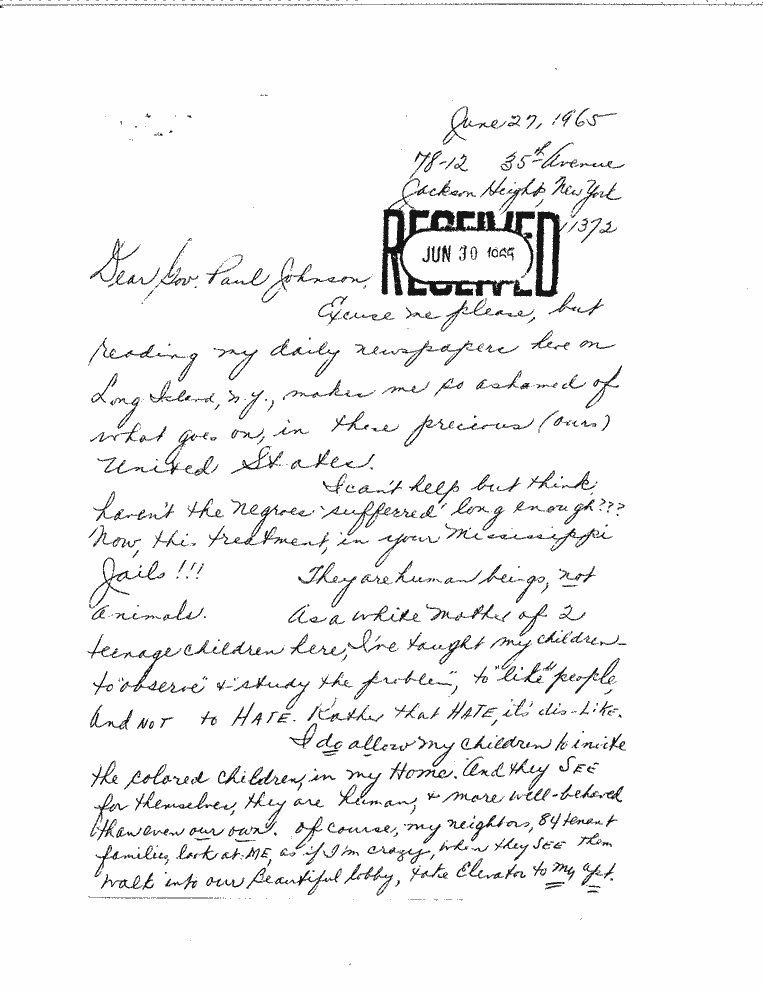 June 27, 1965
78-12 35th Avenue
Jackson Heights, New York
11372
RECEIVED
JUN 30 1965
Dear Gov. Paul Johnson,
Excuse me please, but
reading my daily newspapers here on
Long Island, N.Y., makes me so ashamed of
what goes on, in these precious (ours)
United States.
I can't help but think,
haven't the Negroes "sufferred" long enough???
Now, this treatment, in your Mississippi
Jails!!! They are human beings, not
animals. As a white mother of 2
teenage children here, I've taught my children-
to "observe" & "study the problem", to "like" people,
and NOT to HATE. Rather that HATE, it's dis-LIKE.
I do allow my children to invite
the colored children, in my Home. And they SEE
for themselves, they are human, & more well-behaved
than even our own. Of course, my neighbors, 84 tenant
families, look at ME, as if I'm crazy, when they SEE them
walk into our Beautiful lobby, & take Elevator to my apt.